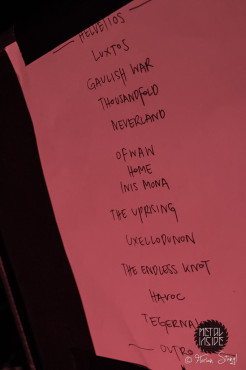 HELVETIOS
LUXTOS
GAULISH WAR
THOUSANDFOLD
NEVERLAND
OFWAW
HOME
INIS MONA
THE UPRISING
UXELLODUNON
THE ENDLESS KNOT
HAVOC
TEGERNAK
~ OUTRO
METAL
INSIDE
©